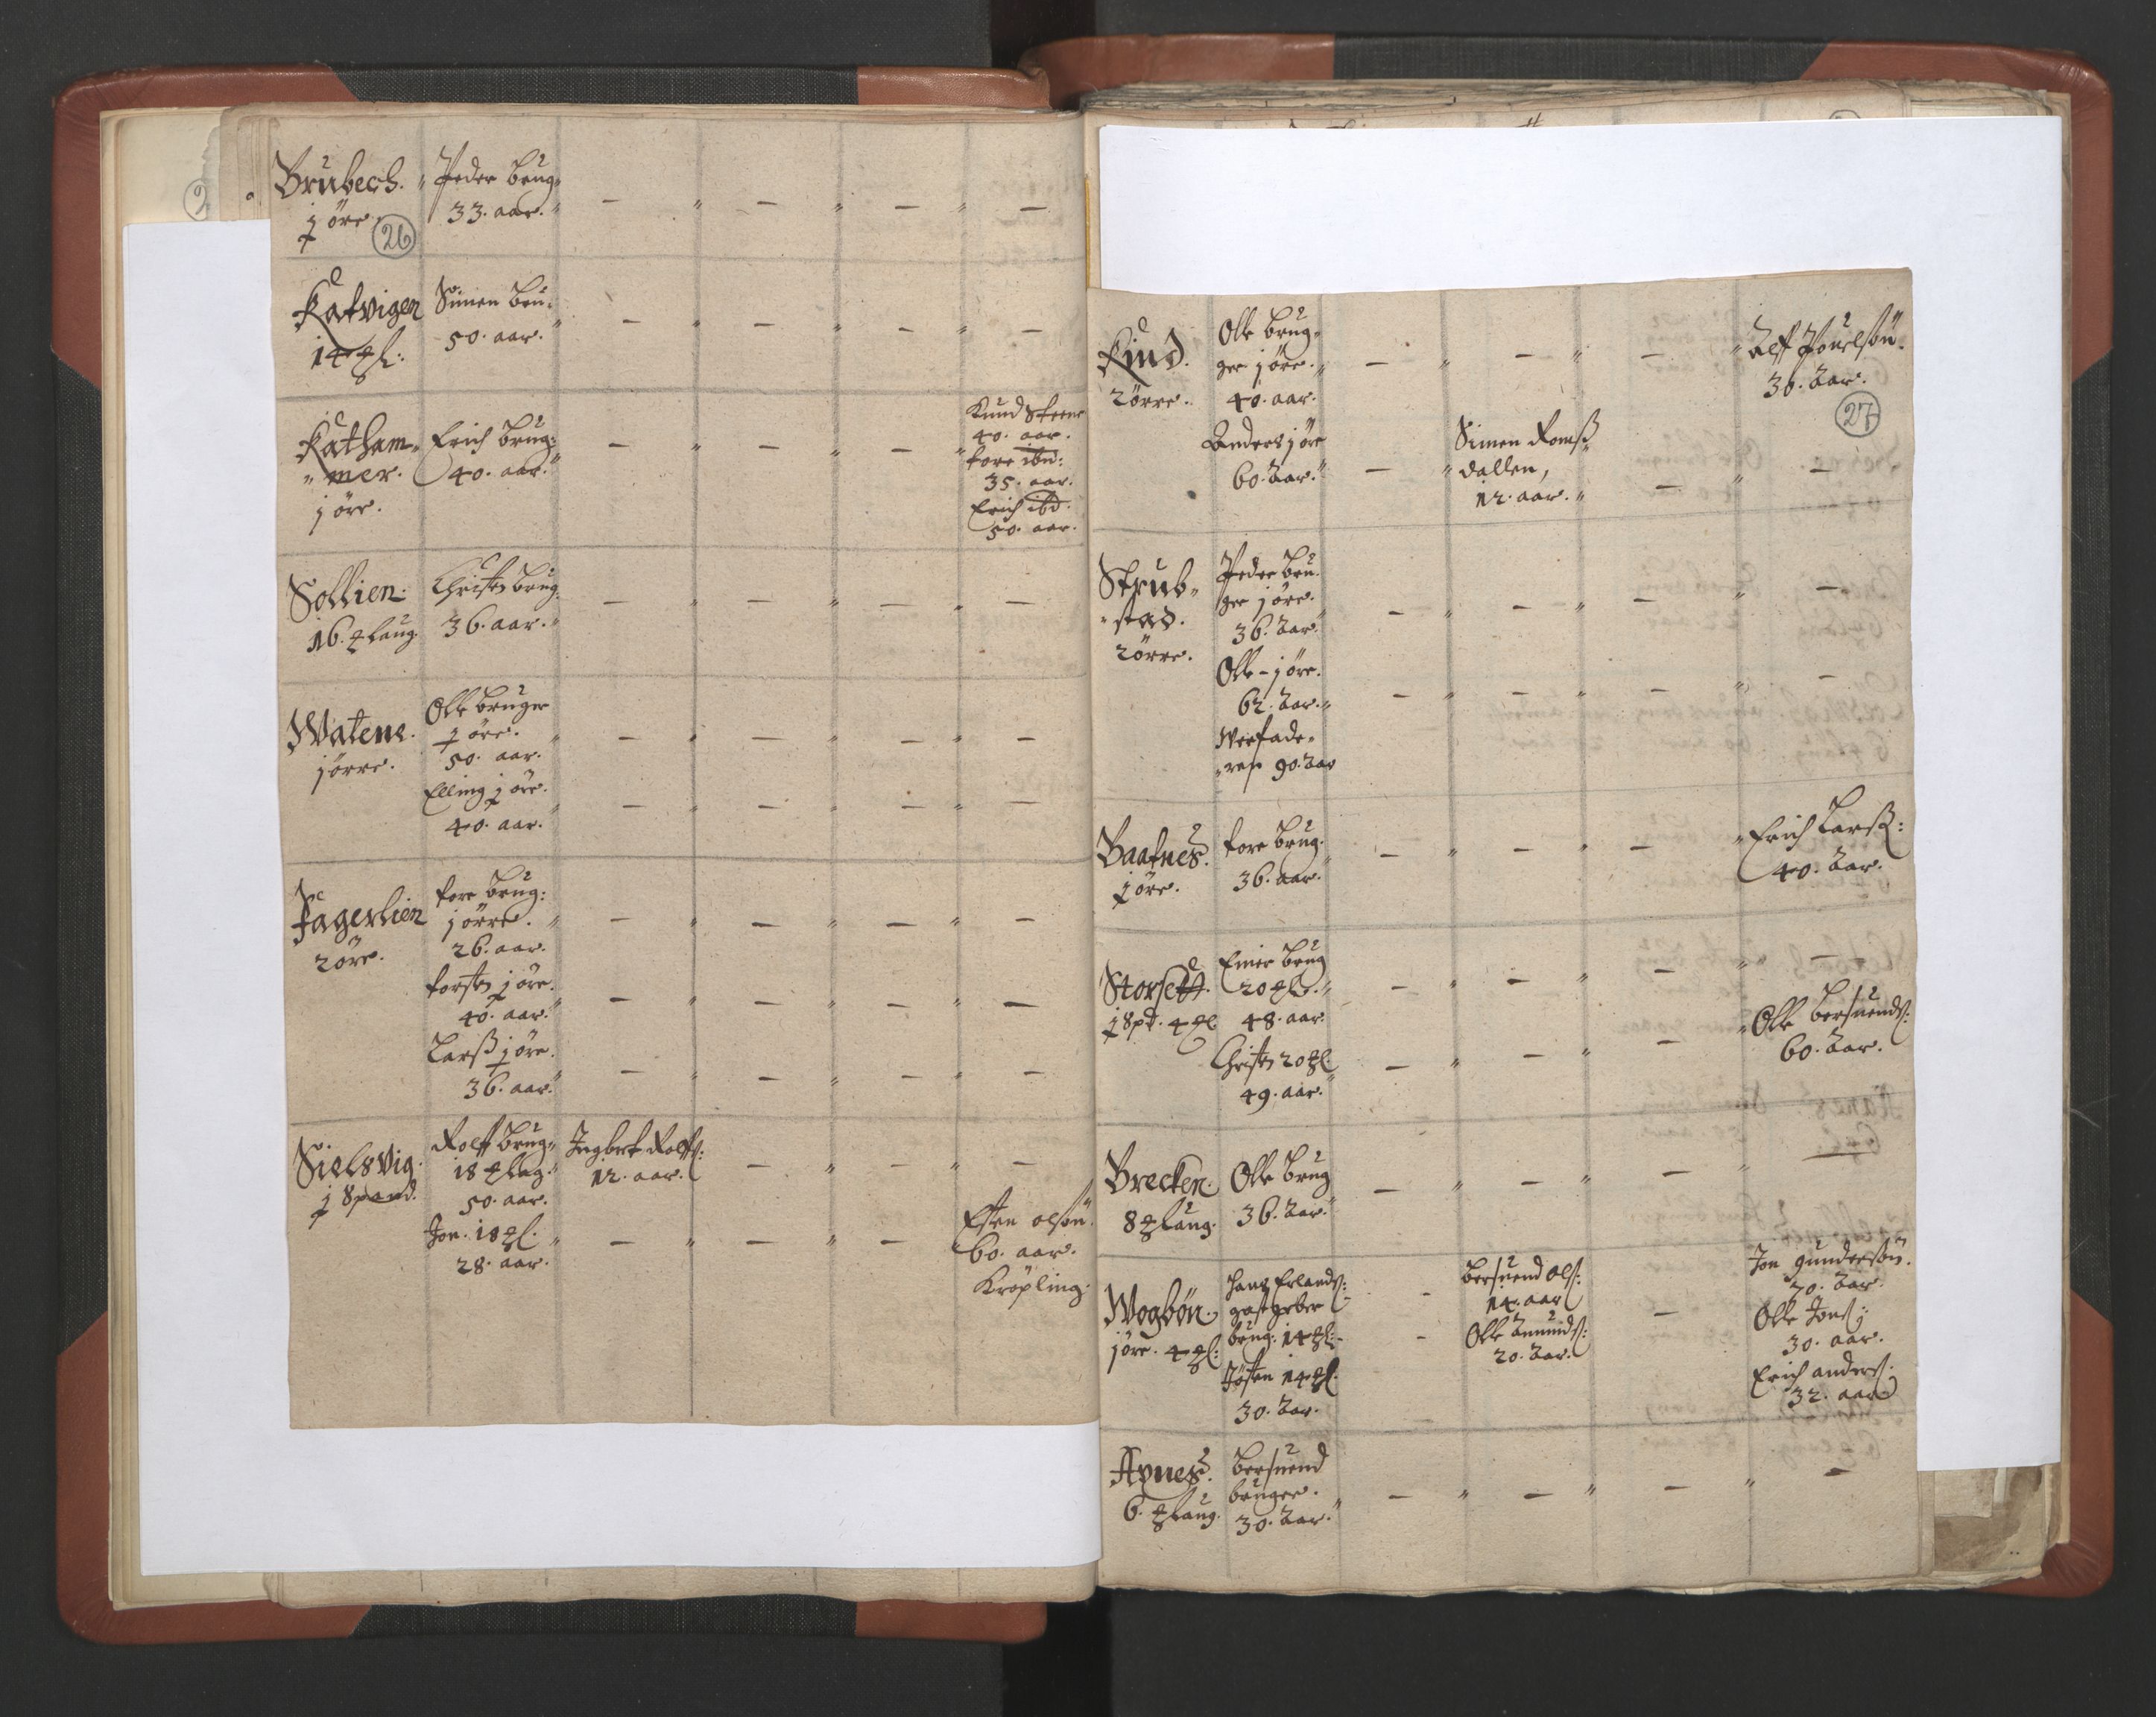 Brubech.
j öre.
26
Peder brug
33. aar.
Katvigen
14 ℔:
Simen bru:
50. aar.
Katham-
mer.
j öre.
Erich brug:
40. aar.
Knud Steens
40. aar.
Tore ibd:
35. aar.
Erich ibd.
50. aar.
Sollien.
16. ℔ laug.
Christen brug.
36. aar.
Watene.
j örre.
Olle bruger
j öre.
50. aar.
Elling j öre.
40. aar.
Fagerlien
2 öre.
Tore brug:
j örre.
26. aar.
Torsten j öre.
40. aar.
Larß j öre.
36. aar.
Sielsvig.
j Spand.
Rolff brug
18 ℔ lag.
50. aar.
Jon. 18 ℔.
28. aar.
Ingbret Rolfs:
12. aar.
Esten olsön.
60. aar.
Kröpling.
Kind.
2 örre.
Olle brug-
ger j öre.
40. aar.
Anders j öre
60. Aar.
Simen Romß
dallen,
12. aar.
Alf Poüelsön.
30. Aar.
27
Strub-
stad.
2 örre.
Peder bru-
ger j öre.
36. Aar.
Olle - j öre.
62. Aar.
Werfade-
ren 90. Aar
Baatnes.
j öre.
Tore brug.
36. aar.
Erich Larß:
40. Aar.
Storsett.
j Spd. 4 ℔
Einer brug
20 ℔.
48. aar.
Christen 20 ℔
49. aar.
Olle Bersuends:
60. Aar.
Brecken.
8 ℔ laug.
Olle brug
36. Aar.
Wogbön.
j öre. 4 ℔:
Hans Erlands:
gastgeber
brug: 14 ℔:
Jösten 14 ℔.
30. Aar.
Bersuend Ols:
14. aar
Olle Amunds:
20. Aar.
Jon Gundersön.
70. Aar.
Olle Jons:
30. aar.
Erich anders:
32. aar
Aynes.
6. ℔ laug.
Bersuend
bruger.
30. Aar.